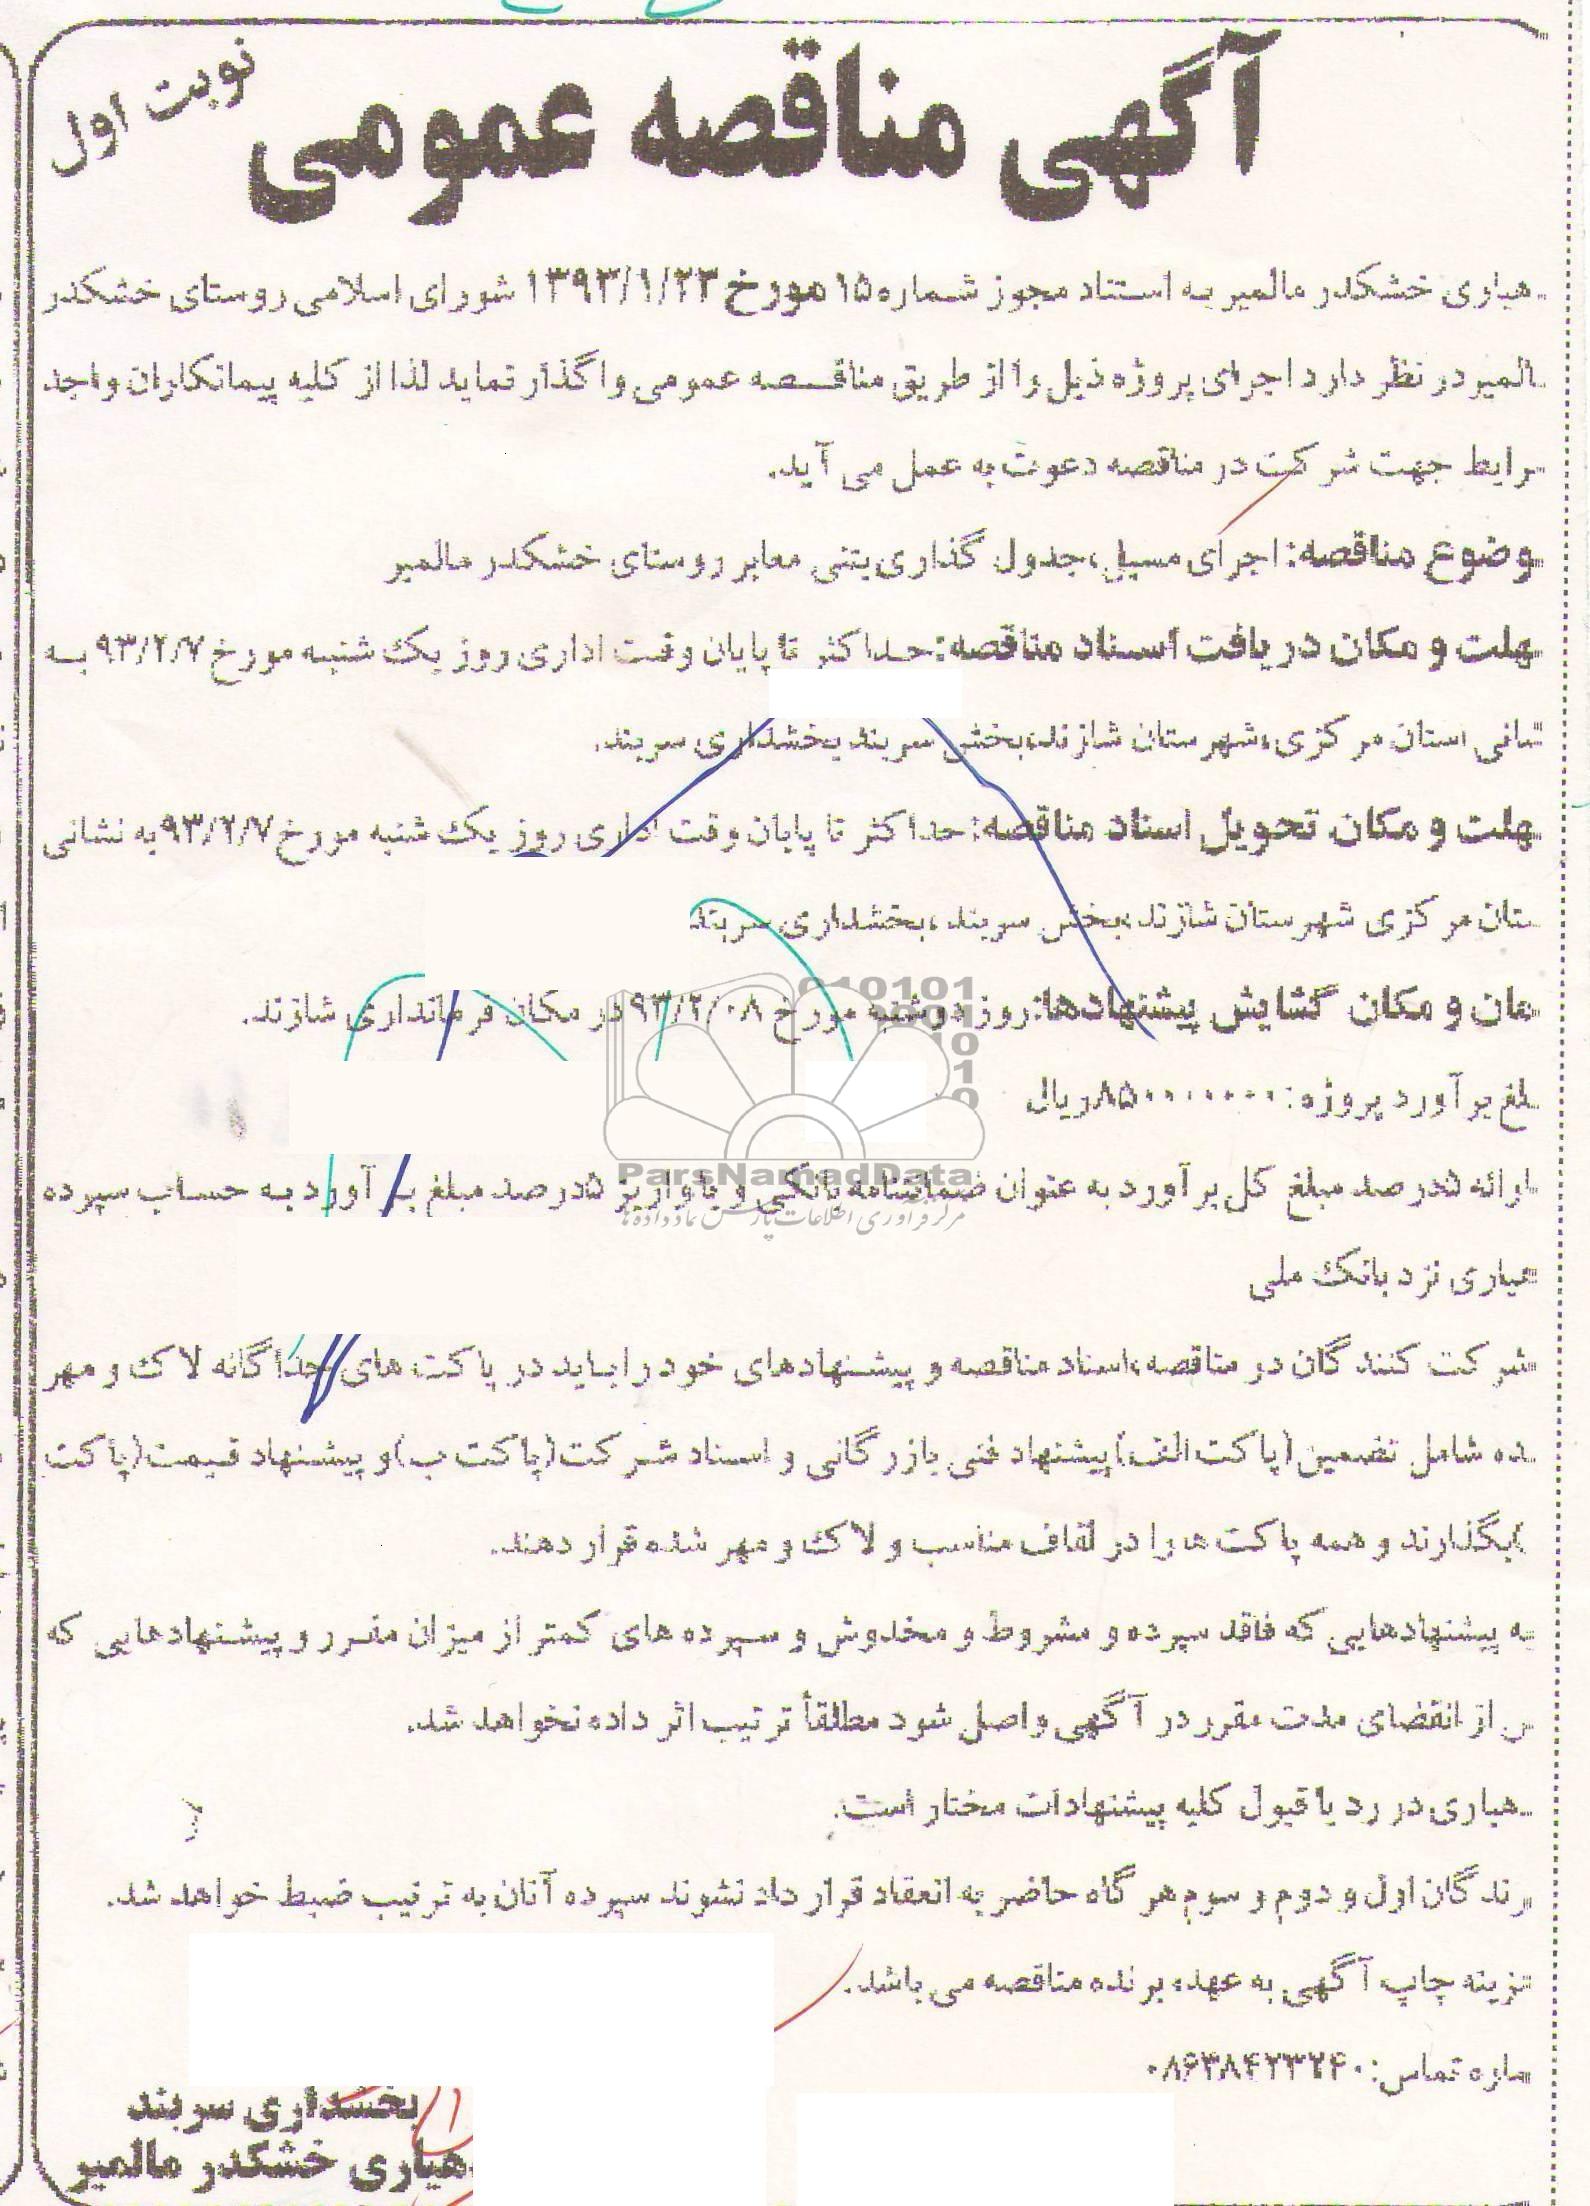 آگهی مناقصه عمومی
نوبت اول
هیاری خشکدر مالمیر به استناد مجوز شماره ۱۵ مورخ ۱۳۹۳/۱/۲۳ شورای اسلامی روستای خشکدر
المیر در نظر دارد اجرای پروژه ذیل را از طریق مناقصه عمومی واگذار نماید لذا از کلیه پیمانکاران واجد
رایط جهت شرکت در مناقصه دعوت به عمل می آید.
وضوع مناقصه: اجرای مسیل، جدول گذاری بتنی معابر روستای خشکدر مالمیر
هلت و مکان دریافت اسناد مناقصه: حداکثر تا پایان وقت اداری روز یک شنبه مورخ ۹۳/۲/۷ به
شانی استان مرکزی، شهرستان شازند، بخش سربند بخشداری سربند.
هلت و مکان تحویل اسناد مناقصه: حداکثر تا پایان وقت اداری روز یک شنبه مورخ ۹۳/۲/۷ به نشانی
ستان مرکزی شهرستان شازند، بخش سربند، بخشداری سربند
مان و مکان گشایش پیشنهادها: روز دوشنبه مورخ ۹۳/۲/۰۸ در مکان فرمانداری شازند.
لغ برآورد پروژه: ۸۵۰۰۰۰۰۰۰ ریال
ارائه ۵درصد مبلغ کل برآورد به عنوان ضمانتنامه بانکی و یا واریز ۵درصد مبلغ برآورد به حساب سپرده
هیاری نزد بانک ملی
شرکت کنندگان در مناقصه، اسناد مناقصه و پیشنهادهای خود را باید در پاکت های جداگانه لاک و مهر
ده شامل تضمین(پاکت الف)پیشنهاد فنی بازرگانی و اسناد شرکت(پاکت ب)و پیشنهاد قیمت(پاکت
)بگذارند و همه پاکت ها را در لفاف مناسب و لاک و مهر شده قرار دهند.
به پیشنهادهایی که فاقد سپرده و مشروط و مخدوش و سپرده های کمتر از میزان مقرر و پیشنهادهایی که
س از انقضای مدت مقرر در آگهی واصل شود مطلقاً ترتیب اثر داده نخواهد شد.
هیاری در رد یا قبول کلیه پیشنهادات مختار است.
رندگان اول و دوم و سوم هرگاه حاضر به انعقاد قرار داد نشوند سپرده آنان به ترتیب ضبط خواهد شد.
زینه چاپ آگهی به عهده برنده مناقصه می باشد.
ماره تماس: ۰۸۶۳۸۴۲۳۲۴۰
بخشداری سربند
هیاری خشکدر مالمیر
ParsNamadData
مرکز فرآوری اطلاعات پارس نماد داده ها